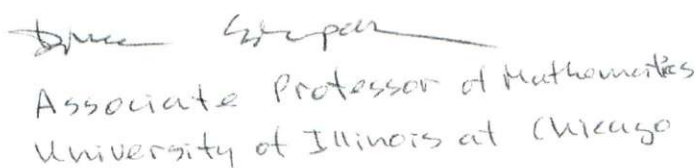 Associate Professor of Mathematics
University of Illinois at Chicago